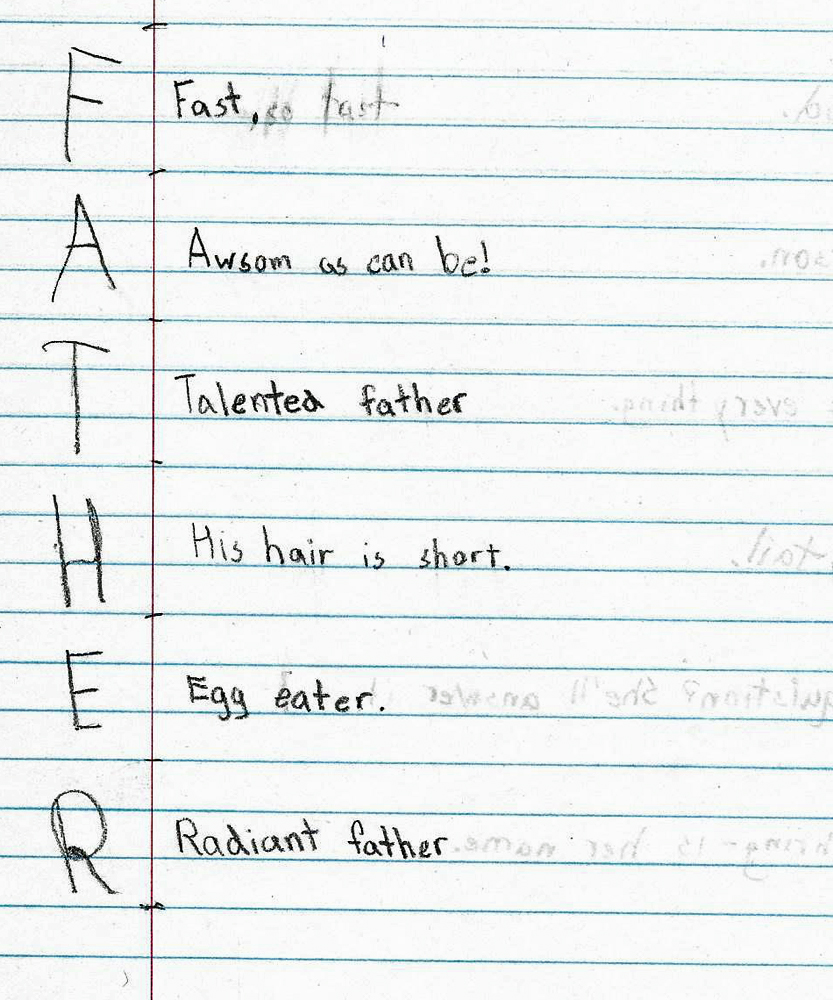 F Fast, so fast
A Awsom as can be!
T Talented father
H His hair is short.
E Egg eater.
R Radiant father.